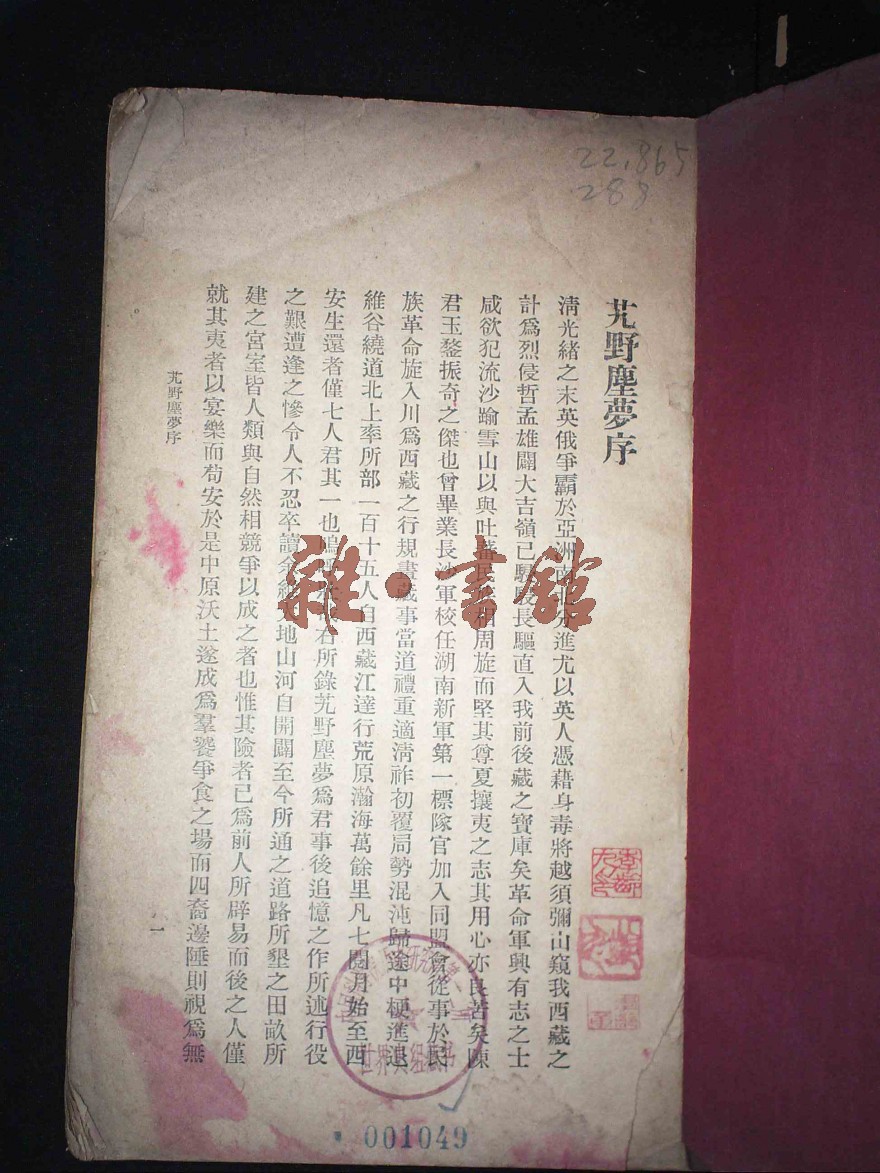 22.865
289
艽野塵夢序
清光緒之末英俄爭霸於亞洲南北分進尤以英人憑藉身毒將越須彌山窺我西藏之
計爲烈侵哲孟雄闢大吉嶺已駸駸長驅直入我前後藏之寶庫矣革命軍興有志之士
咸欲犯流沙踰雪山以與吐蕃民族相周旋而堅其尊夏攘夷之志其用心亦良苦矣陳
君玉鍪振奇之傑也曾畢業長沙軍校任湖南新軍第一標隊官加入同盟會從事於民
族革命旋入川爲西藏之行規畫藏事當道禮重適清祚初覆局勢混沌歸途中梗進退
維谷繞道北上率所部一百十五人自西藏江達行荒原瀚海萬餘里凡七閱月始至西
安生還者僅七人君其一也嗚呼 右所錄艽野塵夢爲君事後追憶之作所述行役
之艱遭逢之慘令人不忍卒讀余 天地山河自開闢至今所通之道路所墾之田畝所
建之宮室皆人類與自然相競爭以成之者也惟其險者已爲前人所辟易而後之人僅
就其夷者以宴樂而苟安於是中原沃土遂成爲羣饕爭食之場而四裔邊陲則視爲無
艽野塵夢序
一
雜·書館
001049